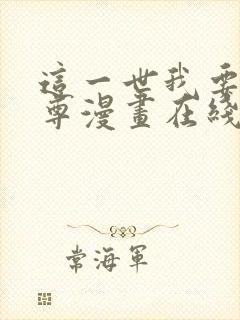 這一世我要
尊漫畫在綫
常海軍